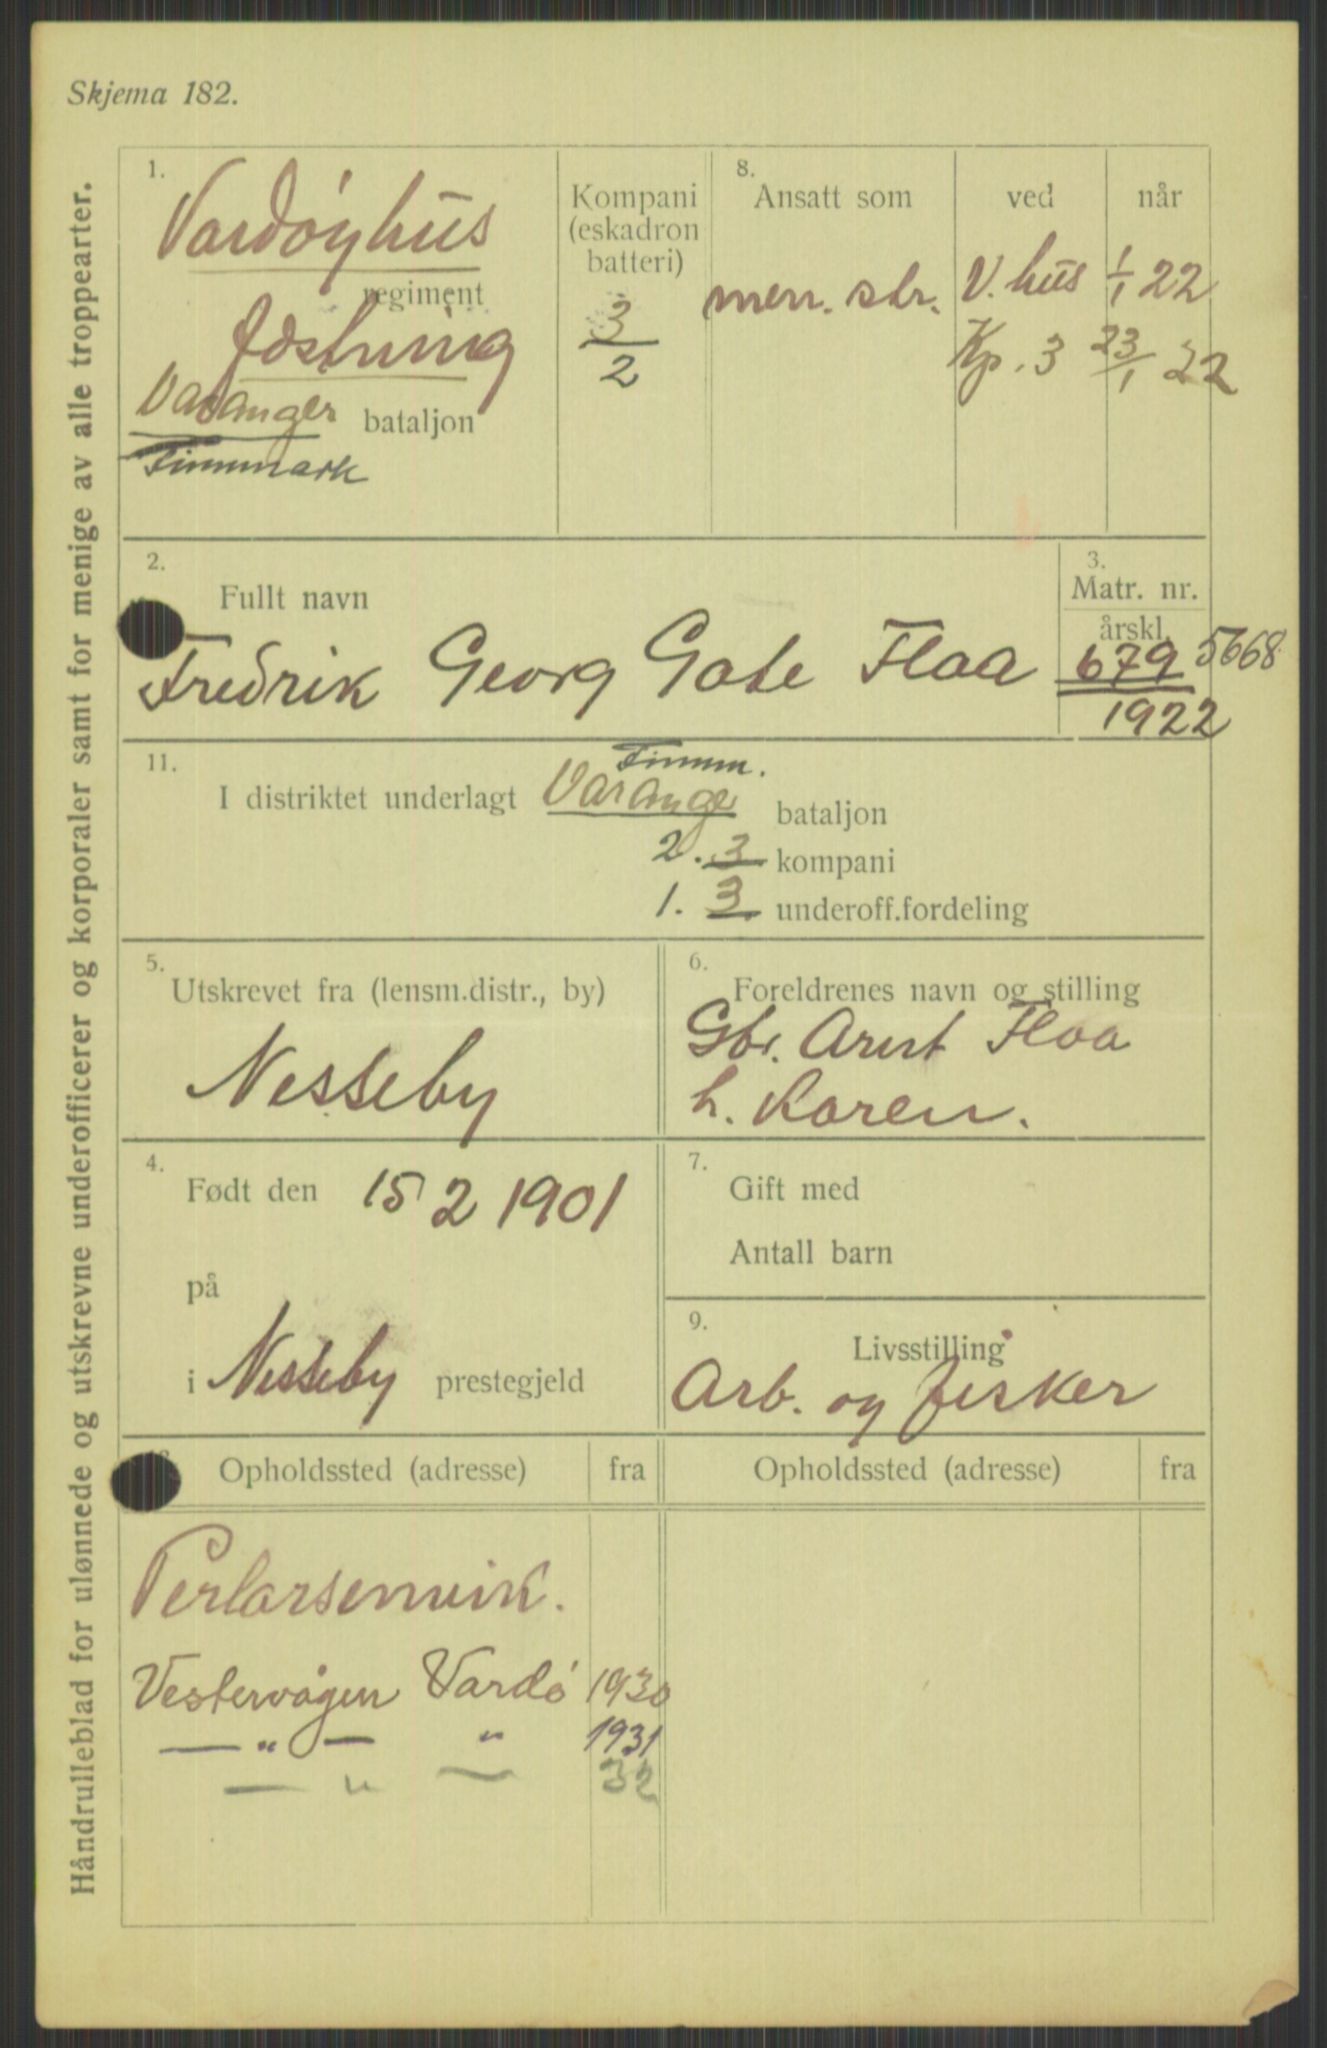 Skjema 182.
Håndrulleblad for ulønnede og utskrevne underofficerer og korporaler samt for menige av alle troppearter.
1.
Vardøyhus
regiment
festning
Varanger bataljon
Finnmark
Kompani
(eskadron
batteri)
3
2
8.
Ansatt som
ved
når
men. str. V. hus 1/1 22
Kp. 3 23/1 22
2.
Fullt navn
Fredrik Georg Gabe Flaa
3.
Matr. nr.
årskl.
679 5668
1922
11.
Finnm.
I distriktet underlagt Varanger bataljon
2. 3 kompani
1. 3 underoff.fordeling
5.
Utskrevet fra (lensm.distr., by)
Nesseby
6.
Foreldrenes navn og stilling
Gbr. Arnt Flaa
h. Karen.
4.
Født den 15 2 1901
på
i Nesseby prestegjeld
7.
Gift med
Antall barn
9.
Livsstilling
Arb. og fisker
Opholdssted (adresse) fra
Opholdssted (adresse) fra
Perlarsenvik.
Vestervågen Vardø 1930
— " — " 1931
— " — 32